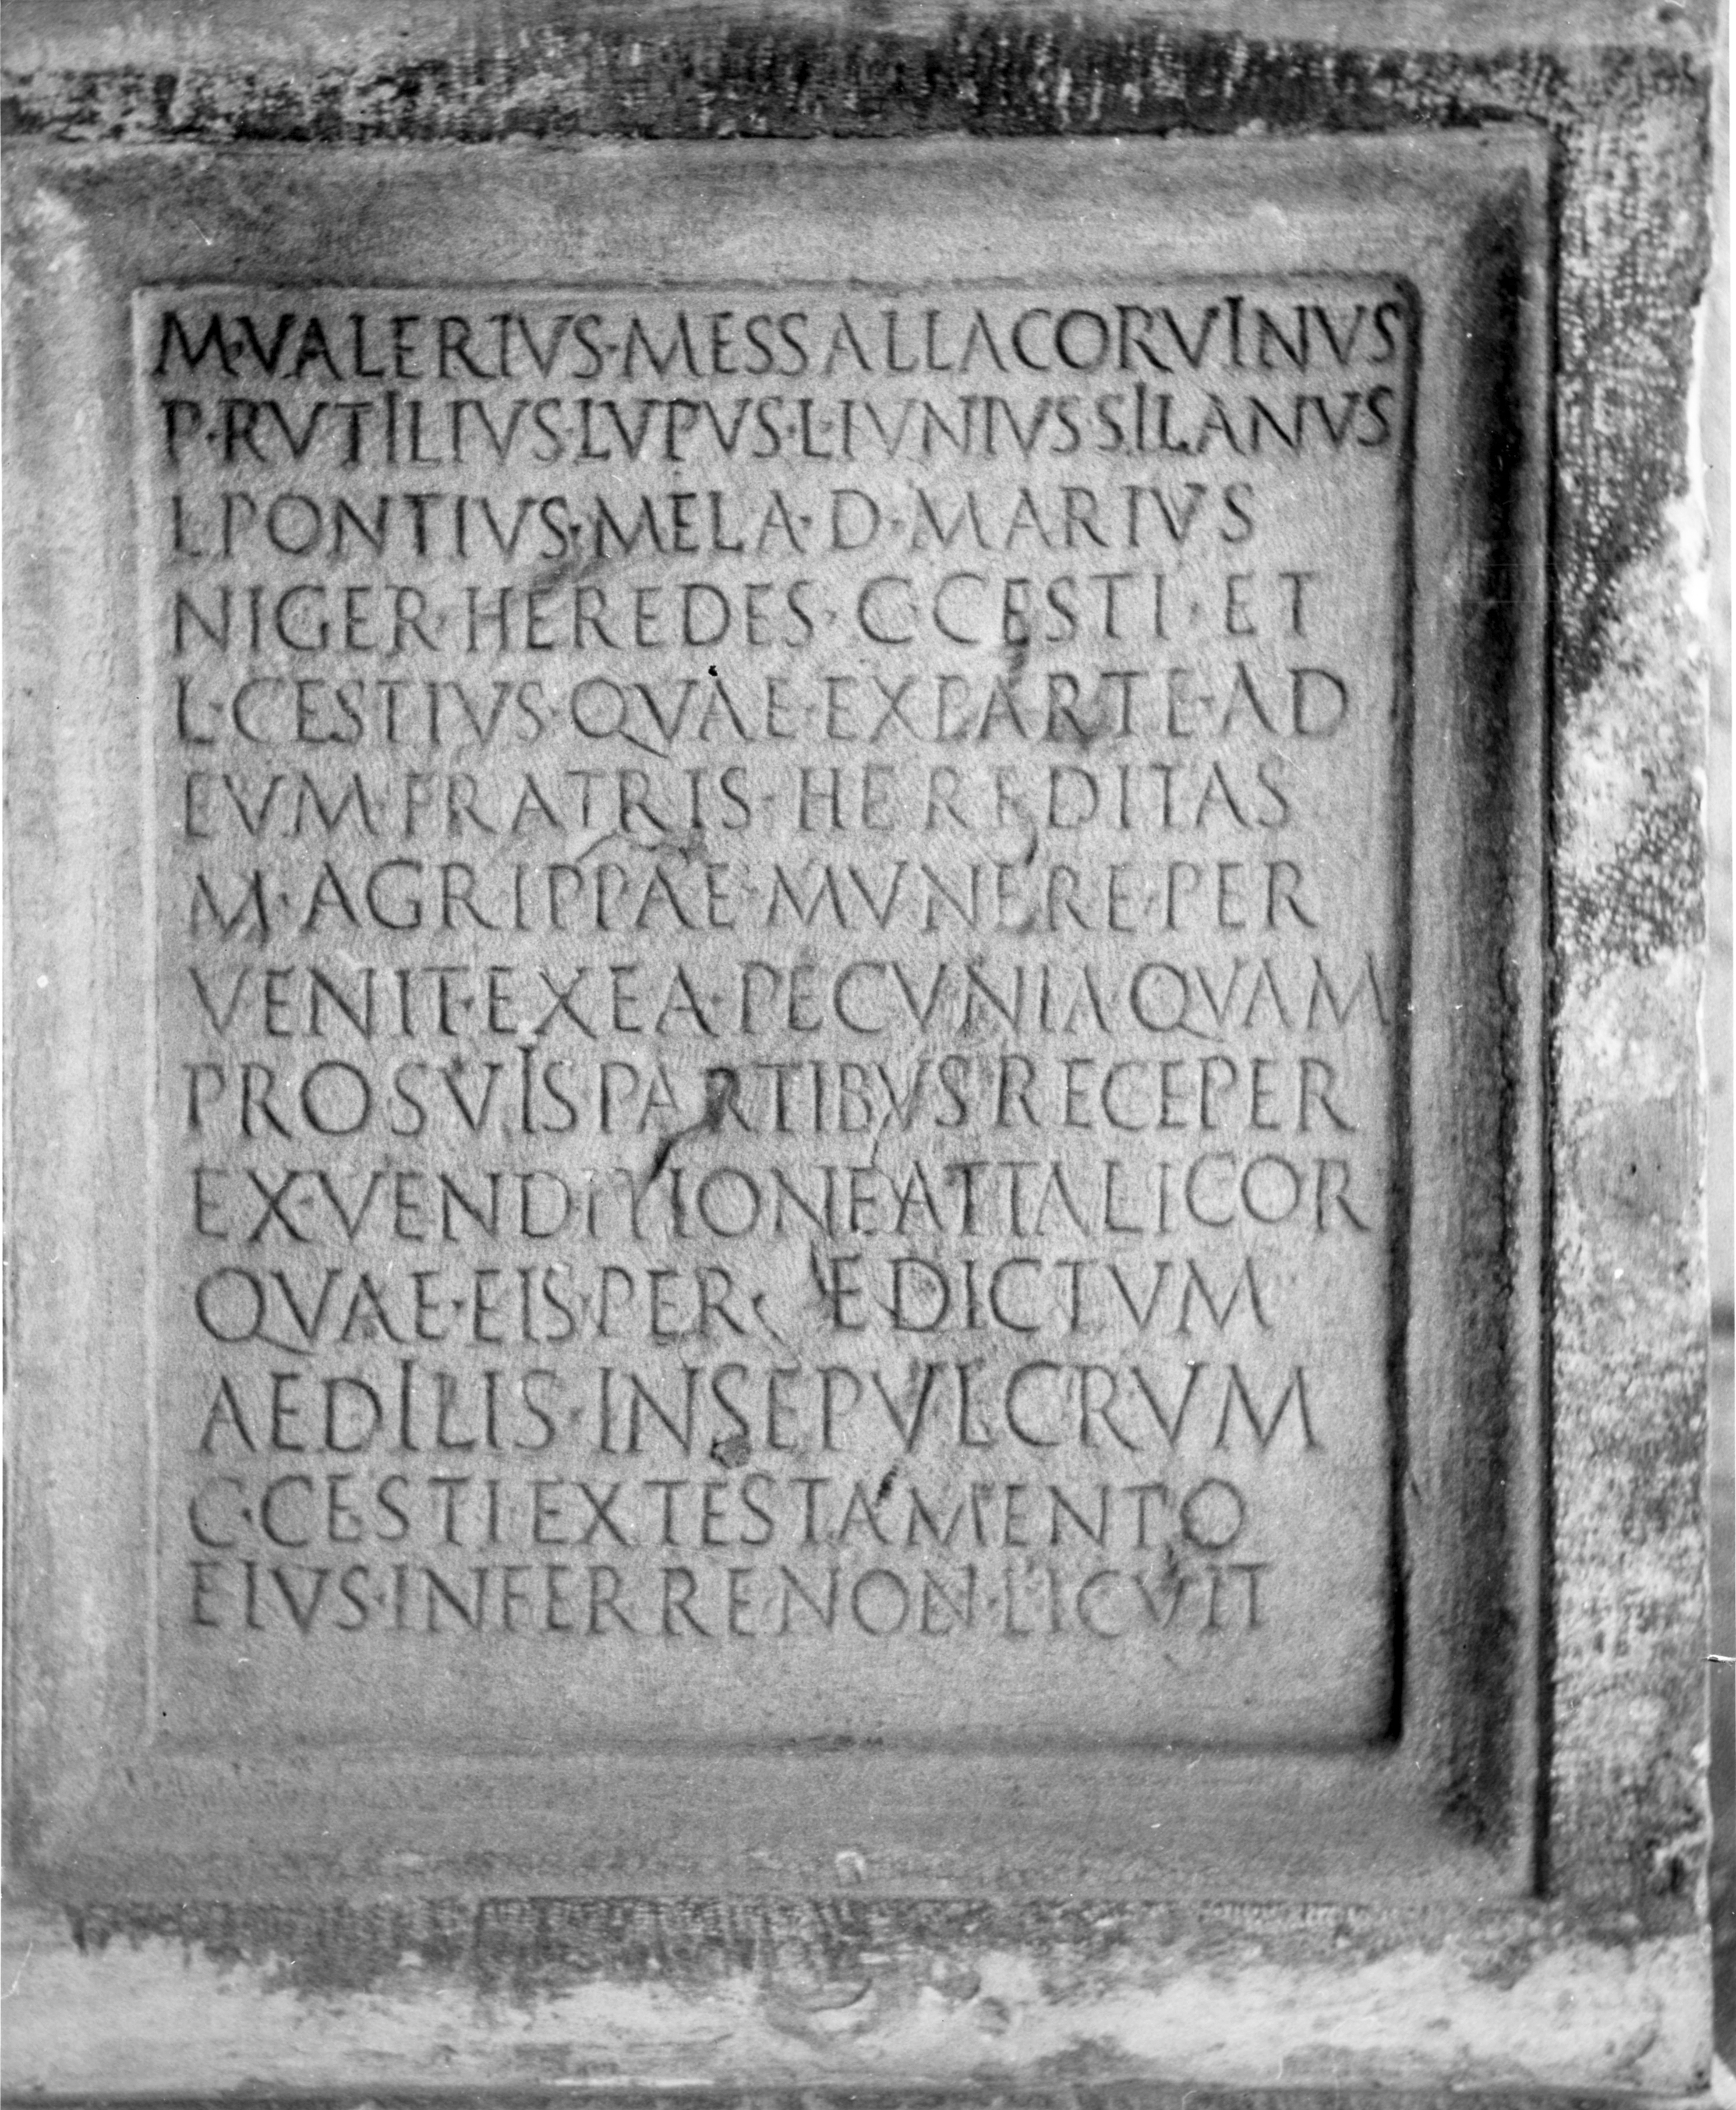 M·VALERIVS·MESSALLA CORVINVS
P·RVTILIVS·LVPVS·L·IVNIVS SILANVS
L·PONTIVS·MELA·D·MARIVS
NIGER·HEREDES·C·CESTI·ET
L·CESTIVS·QVAE·EX PARTE·AD
EVM·FRATRIS·HEREDITAS
M·AGRIPPAE·MVNERE·PER
VENIT·EX EA·PECVNIA·QVAM
PRO SVIS PARTIBVS RECEPER
EX·VENDITIONE ATTALICOR
QVAE·EIS·PER EDICTVM
AEDILIS·IN SEPVLCRVM
C·CESTI·EX TESTAMENTO
EIVS·INFERRE NON·LICVIT